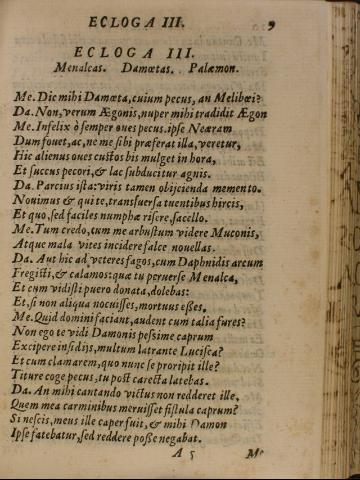 ECLOGA III. 9
ECLOGA III.
Menalcas. Damœtas. Palæmon.
Me. Dic mihi Damœta, cuium pecus, an Melibœi?
Da. Non, verum Ægonis, nuper mihi tradidit Ægon
Me. Infelix ô semper oues pecus. ipse Neæram
Dum fouet, ac, ne me sibi præferat illa, veretur,
Hic alienus oues custos bis mulget in hora,
Et succus pecori, & lac subducitur agnis.
Da. Parcius ista: viris tamen obijcienda memento.
Nouimus & qui te, transuersa tuentibus hircis,
Et quo, sed faciles nymphæ risere, sacello.
Me. Tum credo, cum me arbustum videre Myconis,
Atque mala vites incidere falce nouellas.
Da. Aut hic ad veteres fagos, cum Daphnidis arcum
Fregisti, & calamos: quæ tu peruerse Menalca,
Et cum vidisti puero donata, dolebas:
Et, si non aliqua nocuisses, mortuus esses.
Me. Quid domini faciant, audent cum talia fures?
Non ego te vidi Damonis pessime caprum
Excipere insidijs, multum latrante Lucisca?
Et cum clamarem, quo nunc se proripit ille?
Tityre coge pecus, tu post carecta latebas.
Da. An mihi cantando victus non redderet ille,
Quem mea carminibus meruisset fistula caprum?
Si nescis, meus ille caper fuit, & mihi Damon
Ipse fatebatur, sed reddere posse negabat.
A 5 Me